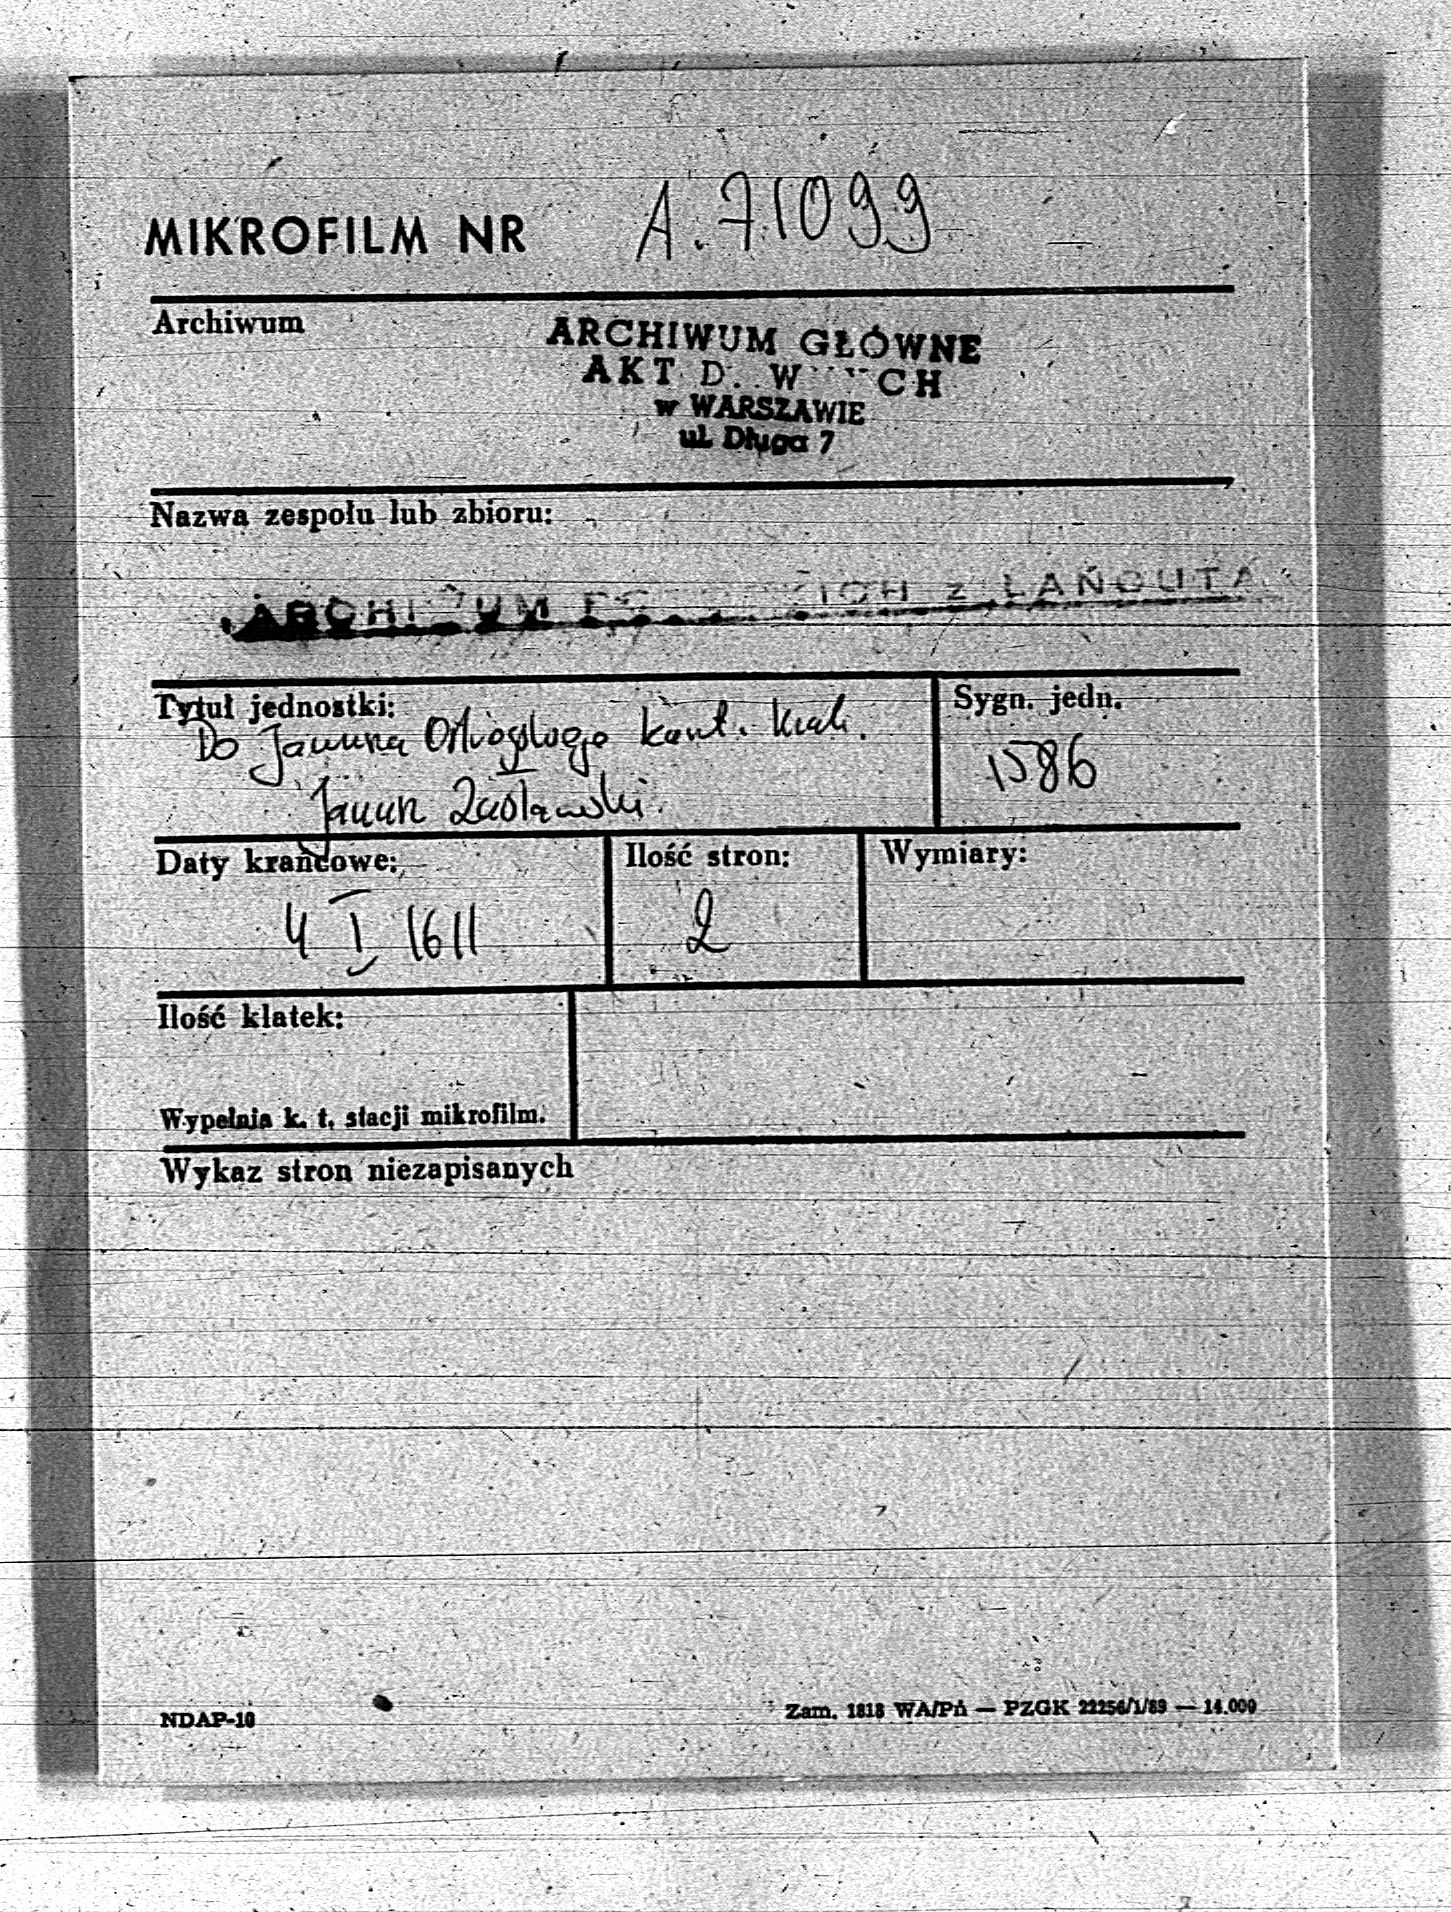 MIKROFILM NR A.71099
Archiwum
ARCHIWUM GŁÓWNE
AKT D. W CH
w WARSZAWIE
ul. Długa 7
Nazwa zespołu lub zbioru:
ARCHIWUM z ŁAŃCUTA
Tytuł jednostki:
Sygn. jedn.
Do Janusza Ostrogskiego kaszt. krak.
1586
Janusz Zasławski
Daty krańcowe:
Ilość stron:
Wymiary:
4 I 1611
2
Ilość klatek:
Wypełnia k. t. stacji mikrofilm.
Wykaz stron niezapisanych
NDAP-10
Zam. 1818 WA/Pń — PZGK 22256/1/89 — 14.000